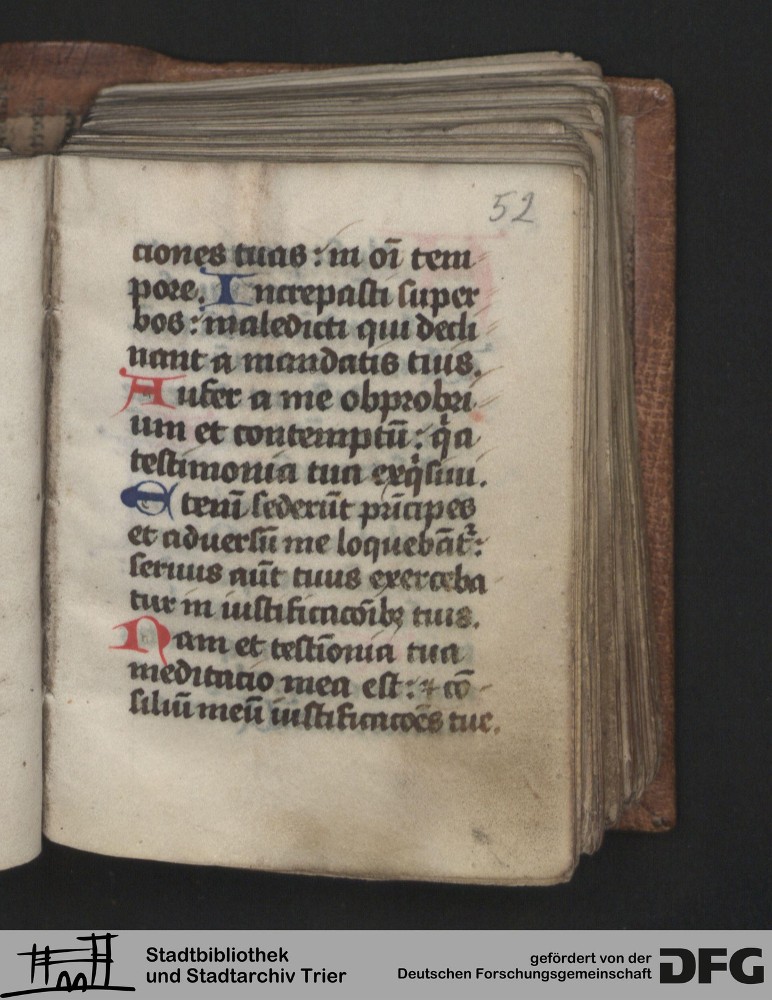 52
ciones tuas : in oī tem
pore. Increpasti super
bos : maledicti qui decli
nant a mandatis tuis.
Aufer a me obprobri
um et contemptū : qͥa
testimonia tua exqͥsiui.
Etenī sederūt prīcipes
et aduersū me loquebāt᷑ :
seruus aūt tuus exerceba
tur in iustificacōībꝫ tuis.
Nam et testīonia tua
meditacio mea est : ⁊ cō
siliū meū iustificacōēs tue.
Stadtbibliothek
und Stadtarchiv Trier
gefördert von der
Deutschen Forschungsgemeinschaft
DFG